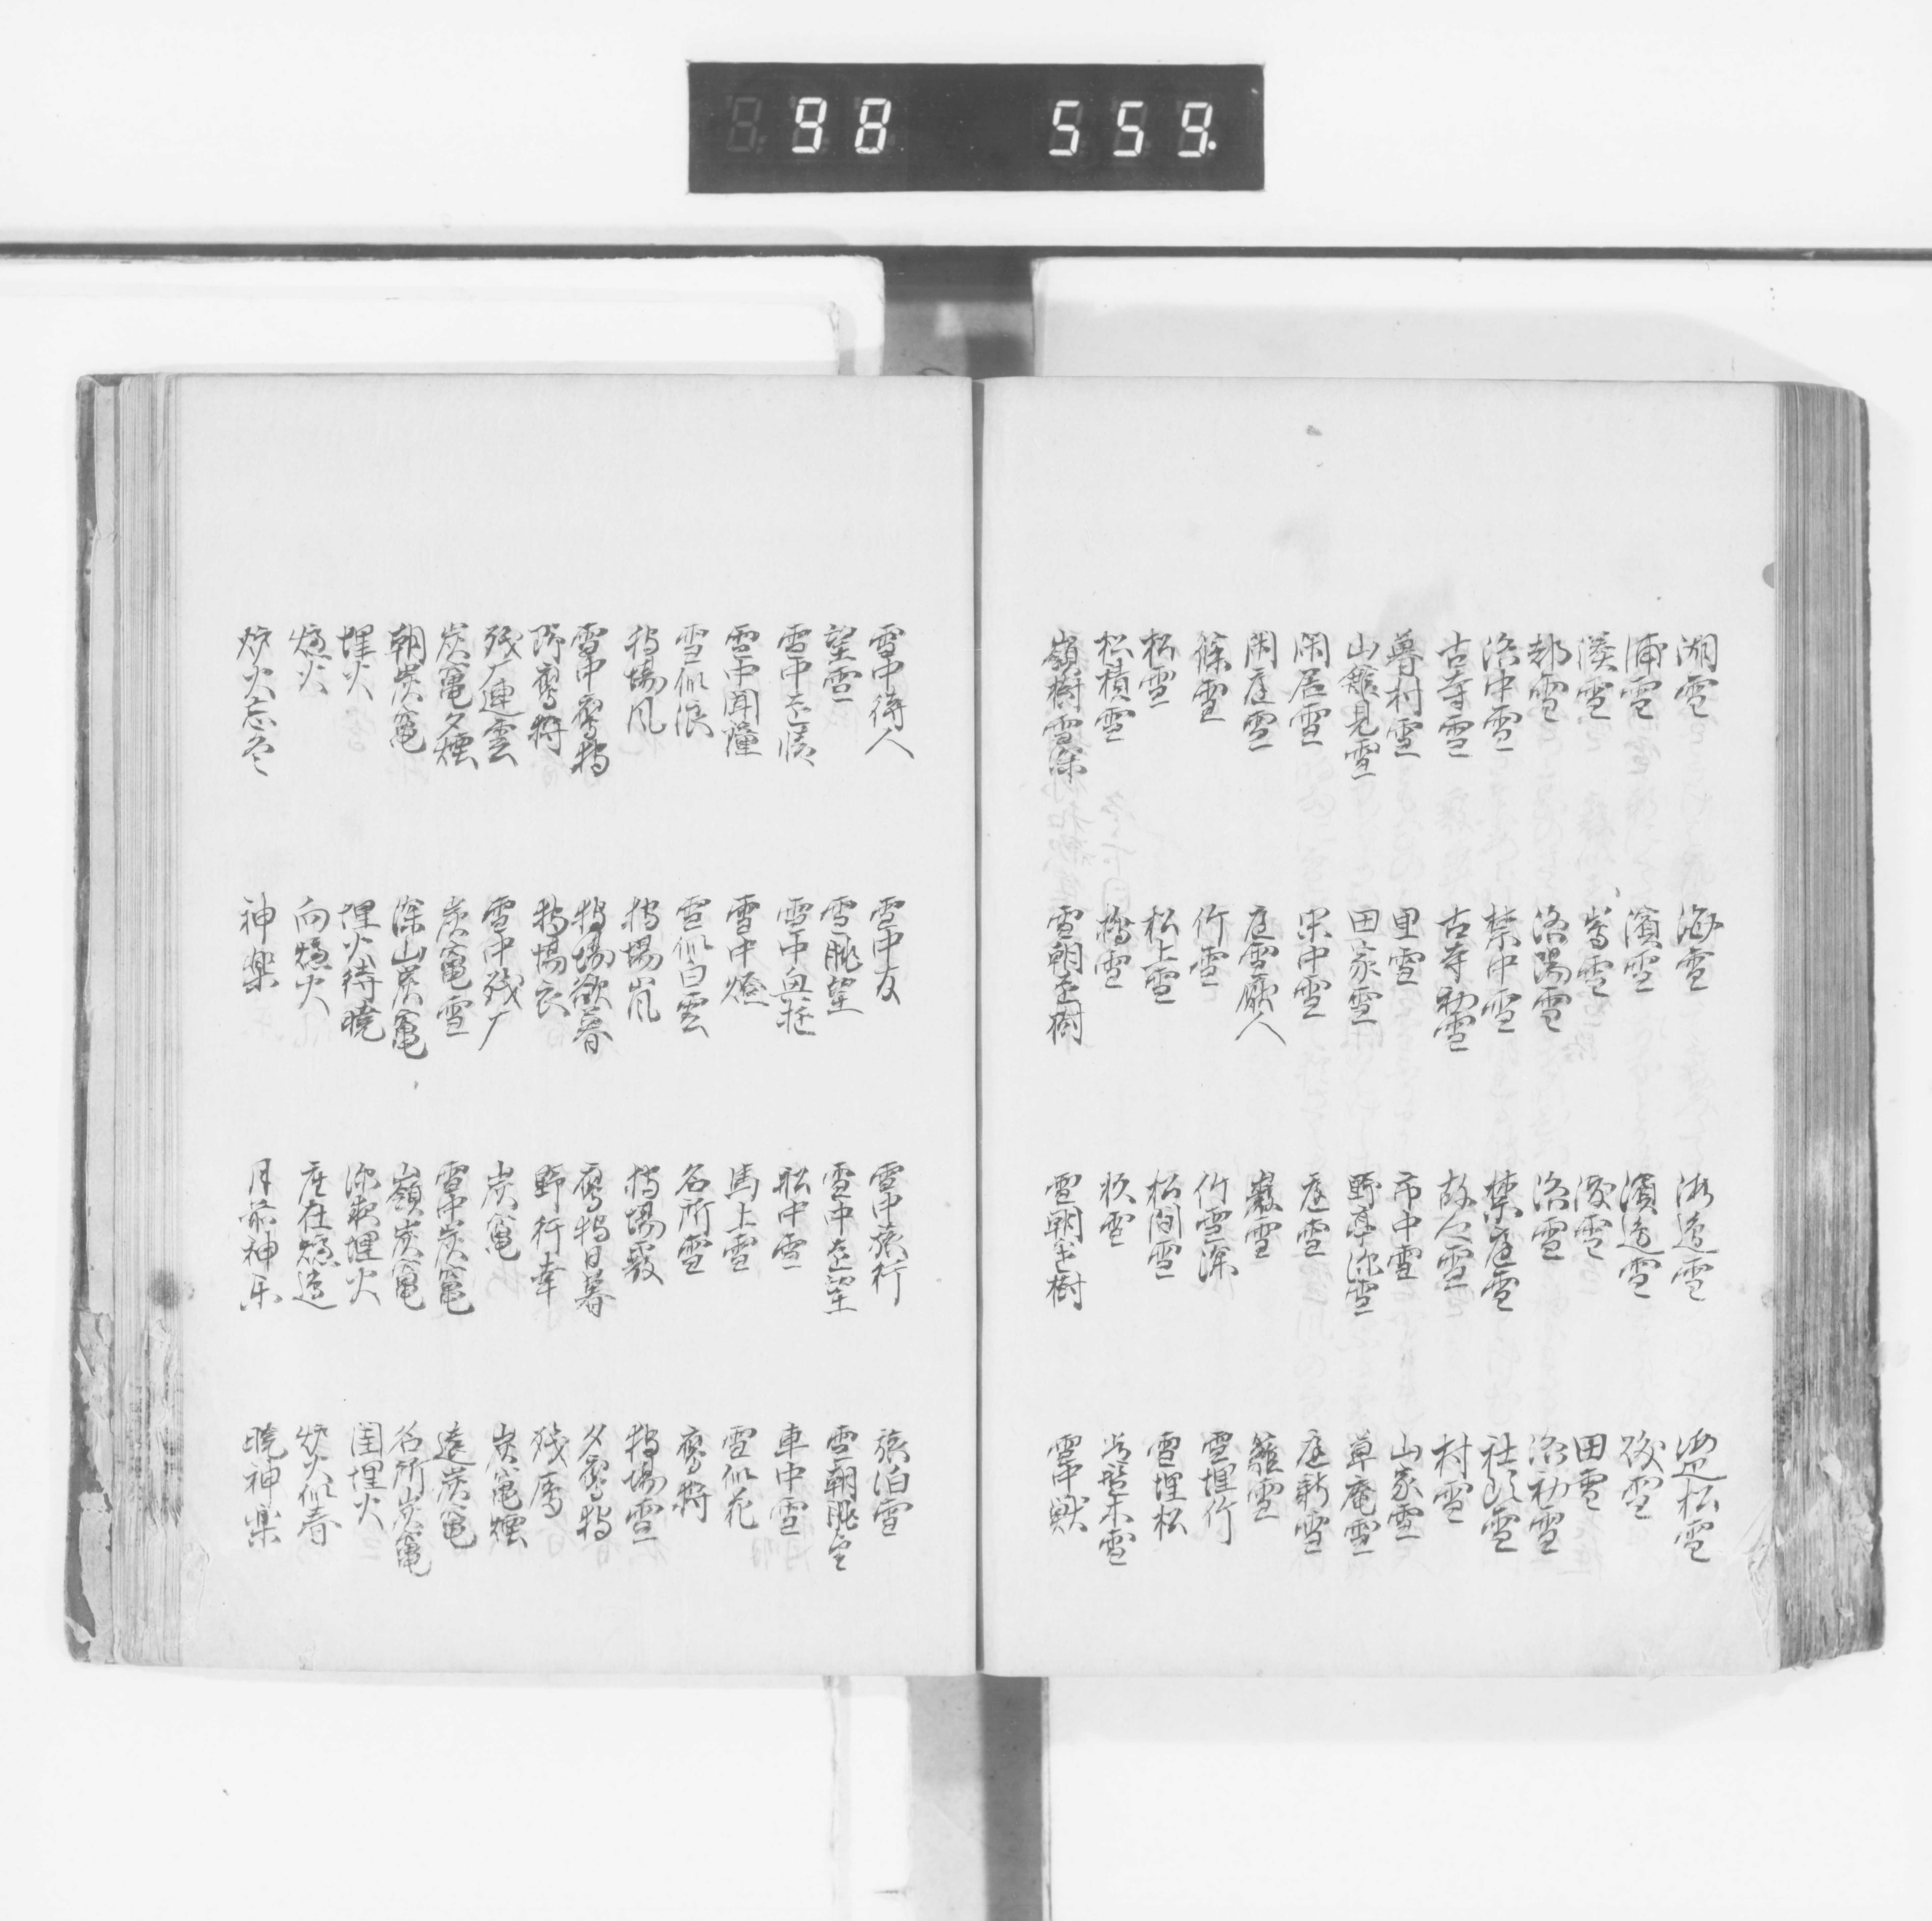 98 559.
湖雪 海雪 海邊雪 海辺松雪
浦雪 濱雪 濱邊雪 磯雪
渓雪 嵩雪 澄雪 田雪
都雪 洛陽雪 洛雪 洛初雪
洛中雪 禁中雪 禁庭雪 社頭雪
古寺雪 古寺初雪 故人雪 村雪
尋村雪 里雪 市中雪 山家雪
山館見雪 田家雪 野亭深雪 草庵雪
閑居雪 閑中雪 庭雪 庭新雪
閑庭雪 庭雪厭人 叢雪 籬雪
篠雪 竹雪 竹雪深 雪埋竹
松雪 松上雪 松間雪 雪埋松
松積雪 檜雪 杉雪 常盤木雪
嶺樹雪深 雪朝遠樹 雪朝遠樹 雪中獣
雪中待人 雪中友 雪中旅行 旅泊雪
望雪 雪眺望 雪中遠望 雪朝眺望
雪中遠情 雪中無往 船中雪 車中雪
雪中聞鐘 雪中燈 馬上雪 雪似花
雪似浪 雪似白雲 名所雪 鷹狩
狩場風 狩場嵐 狩場霰 狩場雪
雪中鷹狩 狩場欲暮 鷹狩日暮 夕鷹狩
野鷹狩 狩場衣 野行幸 残雁
残广連雲 雪中残广 炭竈 炭竈煙
炭竈夕煙 炭竈雪 雪中炭竈 遠炭竈
朝炭竈 深山炭竈 嶺炭竈 名所炭竈
埋火 埋火待曉 深夜埋火 閨埋火
爐火 向爐火 座在爐邊 炉火似春
炉火忘冬 神楽 月前神楽 暁神楽